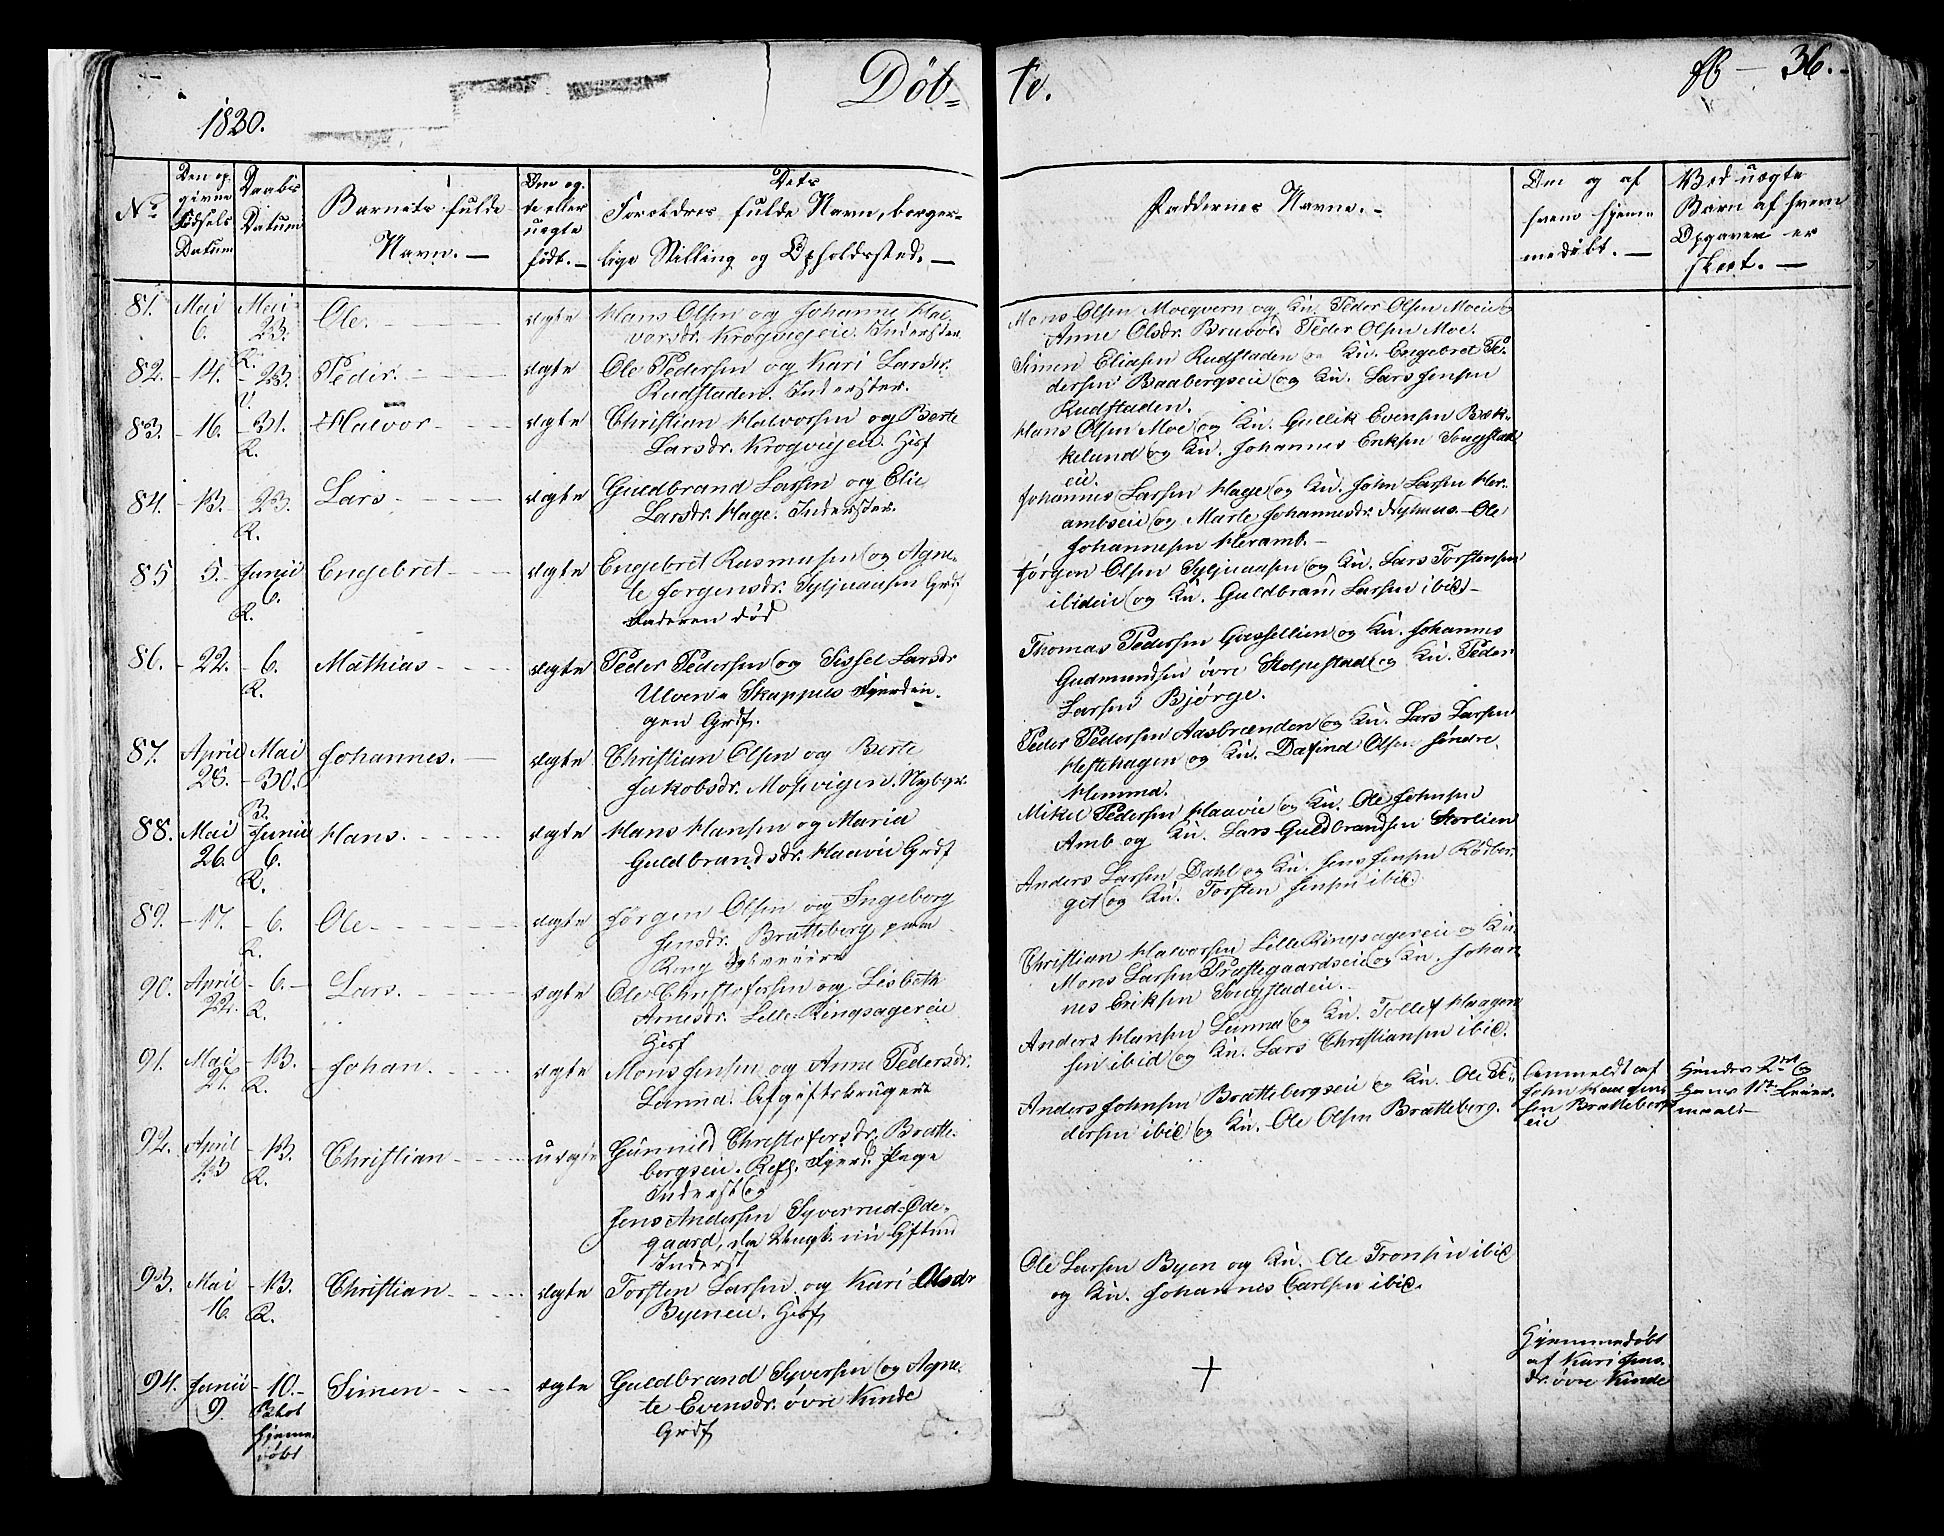 Døb=
te.
fB — 36.
1830.
No
Den op-
givne
Fødsels
Datum
Daabs
Datum
Barnets fulde
Navn. —
Om æg-
te eller
uægte
født. —
Dets
Forældres fulde Navn, borger-
lige Stilling og Opholdssted. —
Faddernes Navne. —
Om og af
hvem hjem-
medøbt. —
Ved uægte
Barn af hvem
Opgaven er
skeet. —
81. Mai 6. Mai 23. R. Ole. ægte Hans Olsen og Johanne Hal-
vorsdr. Krogvigeie. Inderster.
Mons Olsen Moeqvern og Ku. Peder Olsen Moeie
Anne Olsdr. Bruvold Peder Olsen Moe.
82. – 14. – 23. Peder. ægte Ole Pedersen og Kari Larsdr.
Rudstaden. Inderster.
Simen Eliasen Rudstaden og Ku. Engebret Pe-
dersen Baabergseie og Ku. Lars Jensen
Rudstaden.
83. – 16. – 31. R. Halvor ægte Christian Halvorsen og Berte
Larsdr. Krogvigeie. Husf
Hans Olsen Moe og Ku. Gullik Evensen Bæk-
kelund og Ku. Johannes Eriksen Tougstad
eie.
84. – 13. 23. R. Lars ægte Guldbrand Larsen og Elie
Larsdr. Hage. Inderster.
Johannes Larsen Hage og Ku. John Larsen Her-
ambseie og Marte Johannesdr. Nyhuus – Ole
Johannesen Heramb. –
85 5. – Junii 6. R. Engebret ægte Engebret Rasmusen og Agne-
te Jørgensdr. Syljuaasen Grdf
Faderen død
Jørgen Olsen Syljuaasen og Ku. Lars Torstensen
ibideie og Ku. Guldbrand Larsen ibid –
86. – 22. – 6. R. Mathias ægte Peder Pedersen og Sissel Larsdr
Ulven i Skappels Fjerdin-
gen Grdf.
Thomas Pedersen Gaasellien og Ku. Johannes
Gudmundsen øvre Stolpestad og Ku. Peder
Larsen Bjørge.
87. April 28. Mai – 30. B. Johannes. ægte Christian Olsen og Berte
Jakobsdr. Mosvigen. Nybgr.
Peder Pedersen Aasbrænden og Ku. Lars Larsen
Heftehagen og Ku. Dafind Olsen søndre
Hemma.
88. Mai 26. Junii 6. R. Hans. ægte Hans Hansen og Maria
Guldbrandsdr. Haavie Grdf
Mikel Pedersen Haavie og Ku. Ole Johnsen
Amb og Ku. Lars Guldbrandsen Storlien
89. – 17. – 6. R. Ole ægte Jørgen Olsen og Ingeborg
Jensdr. Bratteberg paa
Ring
Anders Larsen Dahl og Ku. Jens Jensen Rødber-
get og Ku. Torsten Jensen ibid
90. April 22. – 6. – R. Lars. ægte Ole Christofersen og Lisbeth
Arnesdr. Lille Ringsagereie
Husf
Christian Halvorsen Lille Ringsagereie og Ku.
Mons Larsen Præstegaardseie og Ku. Johan-
nes Eriksen Tougstadeie.
91. Mai 27. – 13. R. Johan. ægte Mons Jensen og Anne Pedersdr.
Lunna. Afgiftsbruger
Anders Hansen Lunna og Ku. Tollef Haagen
sen ibid og Ku. Lars Christiansen ibid.
92. April 23 – 13. R. Christian uægte Gunnild Christofersdr. Bratte-
bergseie. Fjerd. Pige
Inderst og
Jens Andersen Syverrud-Øde-
gaard, da Ungk. nu Gift
Inderst
Anders Johnsen Brattebergseie og Ku. Ole Pe-
dersen ibid og Ku. Ole Olsen Bratteberg.
Anmeldt af
John
sen Bratteberg
eie
Hendes 2det og
Hans 1ste Leier-
maal –
93. Mai 16. – 13. R. Christian ægte Torsten Larsen og Kari Olsdr
Byeneie. Husf
Ole Larsen Byen og Ku. Ole Tronsen ibid
og Ku. Johannes Carlsen ibid.
94. Junii 9. – 10. – Hjemme-
døbt
Simen ægte Guldbrand Syversen og Agne-
te Evensdr. øvre Kinde
Grdf
†
Hjemmedøbt
af Kari Jens-
dr. øvre Kinde